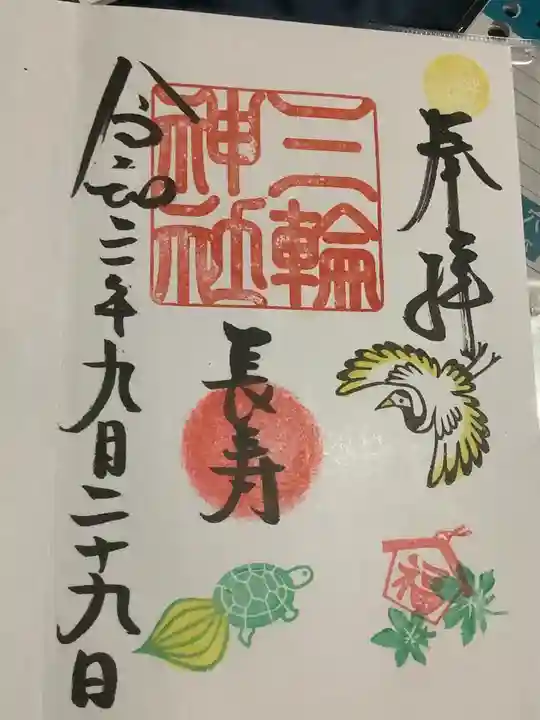 奉拝
三輪
神社
長寿
福
令和二年九月二十九日